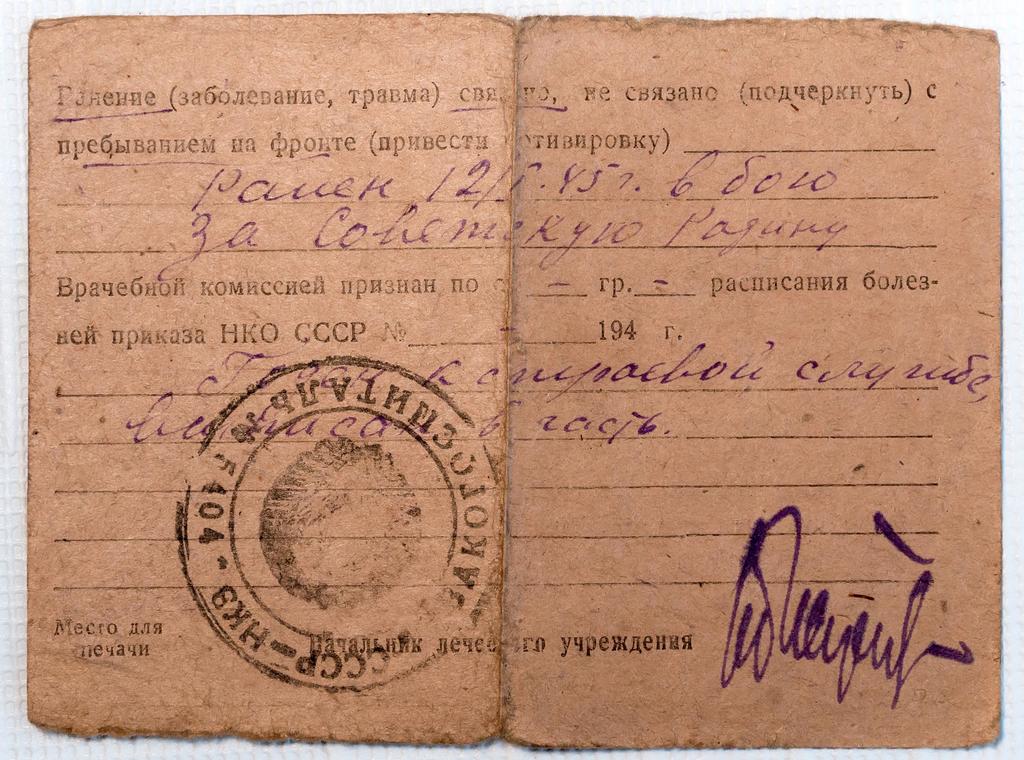 Ранение (заболевание, травма) связано, не связано (подчеркнуть) с
пребыванием на фронте (привести мотивировку)
Ранен 12/ .45 г. в бою
за Советскую Родину
Врачебной комиссией признан по с - гр. - расписания болез-
ней приказа НКО СССР № - 194 г.
Годен к строевой службе,
выписан в часть.
Место для
печати
Начальник лечебного учреждения
СССР-НКЗ - 5404 ЗАКГОССПИТАЛЬ